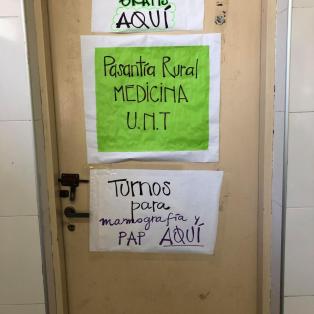 GRATIS
AQUÍ
Pasantía Rural
MEDICINA
U.N.T
Turnos
para
mamografía y
PAP AQUÍ